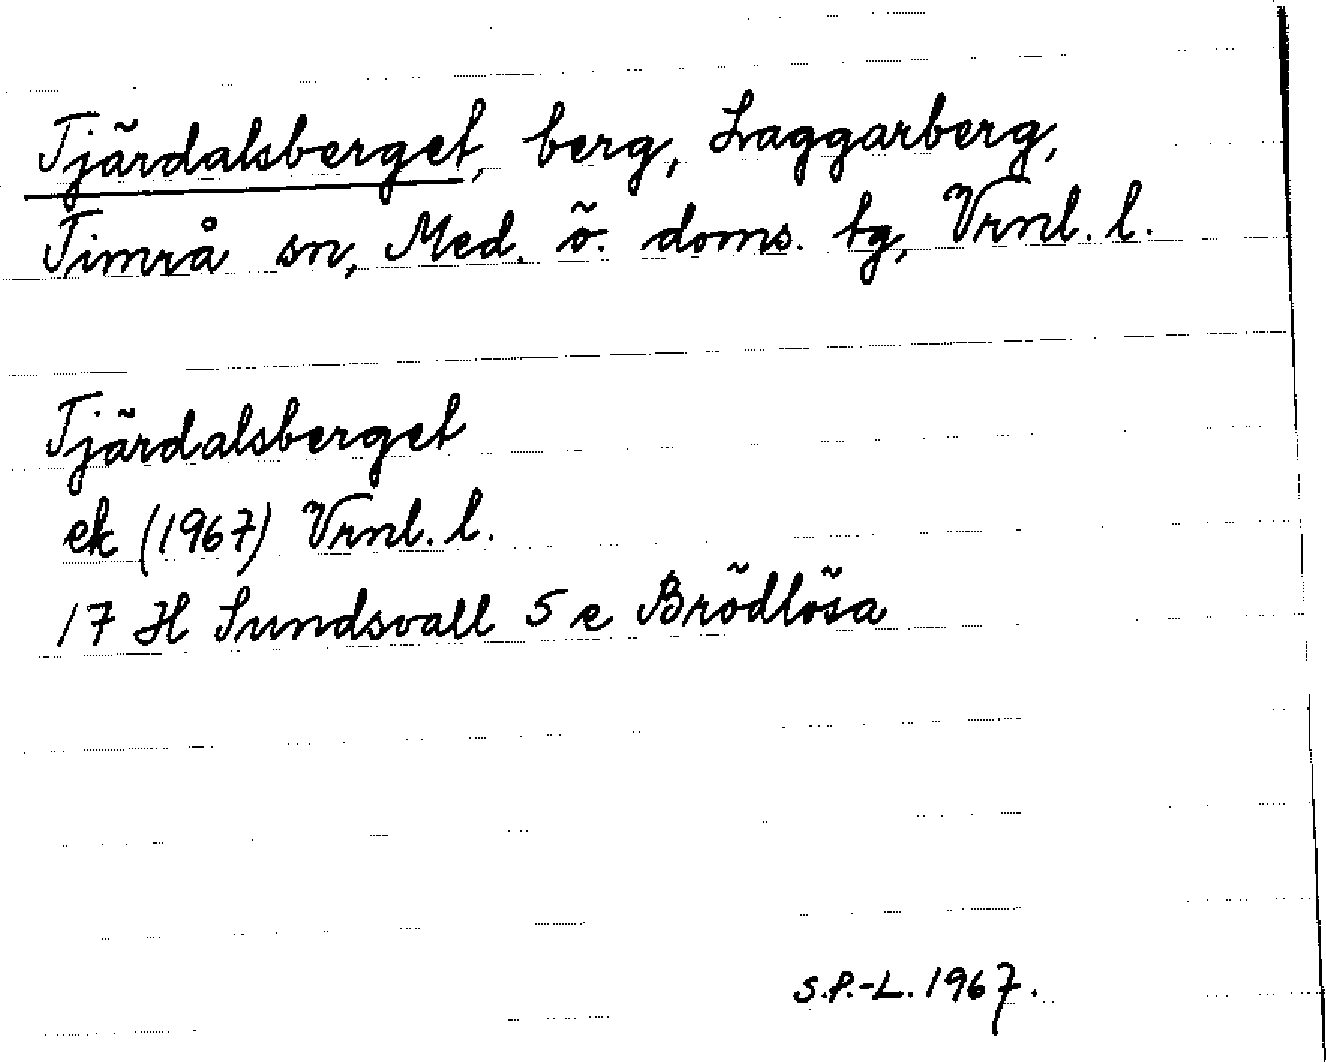 Tjärdalsberget, berg, Laggarberg,
Timrå sn, Med. ö. doms. tg, Vrnl. l.
Tjärdalsberget
ek (1967) Vrnl. l.
17 H Sundsvall 5 e Brödlösa
S.P.-L. 1967.